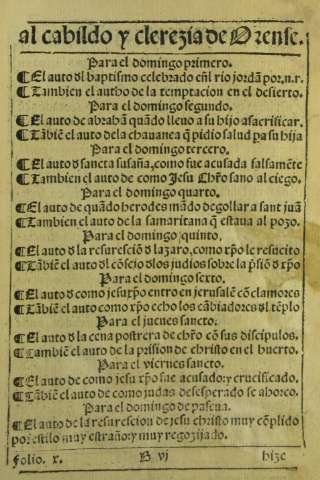 al cabildo y clerezia de Orense.
Para el domingo primero.
¶ El auto dl baptismo celebrado eñl rio jordã por.n.r.
¶ Tambien el autho de la temptacion en el desierto.
Para el domingo segundo.
¶ El auto de abrahã quãdo lleuo a su hijo asacrificar.
¶ Tãbiẽ el auto dela chauanea q̃ pidio salud pa su hija
Para el domingo tercero.
¶ El auto d sancta susaña, como fue acusada falsamẽte
¶ Tambien el auto de como Jesu Chr̃o sano al ciego.
Para el domingo quarto.
¶ El auto de quãdo herodes mãdo degollar a sant juã
¶ Tambien el auto de la samaritana q̃ estaua al pozo.
Para el domingo quinto,
¶ El auto d la resuresciõ d lazaro, como xp̃o le resucito
¶ Tãbiẽ el auto dl cõsejo dlos judios sobre la p̃siõ d xp̃o
Para el domingo sexto,
¶ El auto d como jesuxp̃o entro en jerusalẽ cõ clamores
¶ Tãbiẽ el auto como xp̃o echo los cãbiadores dl tẽplo
Para el jueues sancto.
¶ El auto d la cena postrera de chr̃o cõ sus discipulos.
¶ Tambiẽ el auto de la prision de christo en el huerto.
Para el viernes sancto.
¶ El auto de como jesu xp̃o fue acusado: y crucificado,
¶ Tãbiẽ el auto de como judas desesperado se ahorco.
Para el domingo de pascua.
¶ El auto de la resurescion de jesu christo muy cõplido
por estilo muy estraño: y muy regozijado.
folio. x. B vj hize